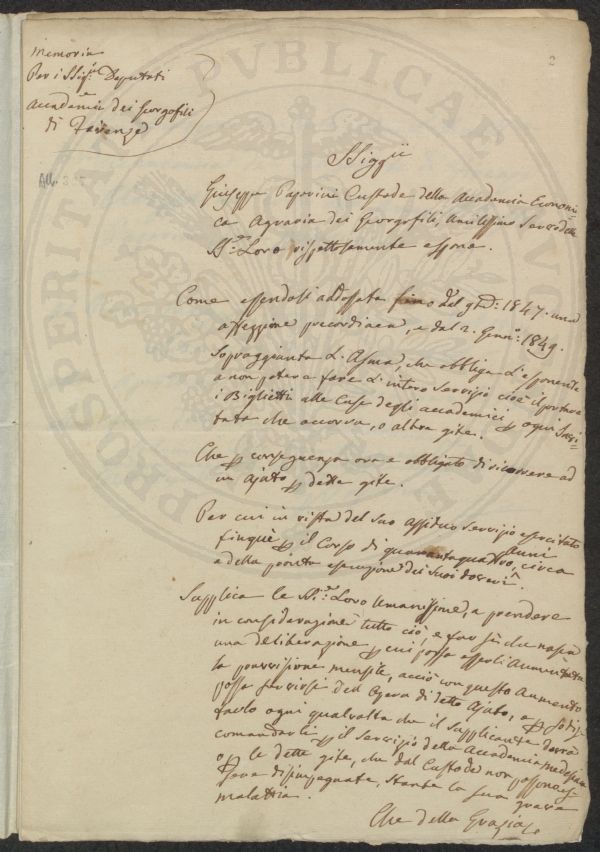 2
Memoria
Per i SSig.ri Deputati
Accademia dei Georgofili
di Firenze
SSiggri
Giuseppe Papovini Custode della Accademia Economi=
ca Agraria dei Georgofili, Umilissimo Servo delle
SS.rie Loro rispettosamente espone.
Come essendoli addossata fino dal 9bre 1847. una
affezzione precordiaca, e dal 2. Genn.o 1849.
Sopraggiunta l'Asma, che obbliga l'esponente
a non potere fare l'intero servizio cioè il portare
i Biglietti alle Case degli accademici p ogni
tata che accorra, o altra gite.
Che p conseguenza ora è obbligato di ricorrere ad
un Ajuto p dette gite.
Per cui in vista del suo assiduo servizio esercitato
finquì p il Corso di quarantaquattro anni circa
e della esecuzione dei suoi doveri.
Supplica le SS.rie Loro Umanissime, a prendere
in considerazione tutto ciò, e far sì che nasca
una deliberazione p cui possa esserli Aumentata
la provvisione mensile, acciò con questo Aumento
possa servirsi dell Opera di detto Ajuto, e p
farlo ogni qualvolta che il supplicante dovrà
comandarli p il servizio della Accademia medesima
o p le dette gite, che dal Custode non possono es=
sere disimpegnate, stante la sua grave
malattia.
Che della Grazia
PROSPERITATI PVBLICAE